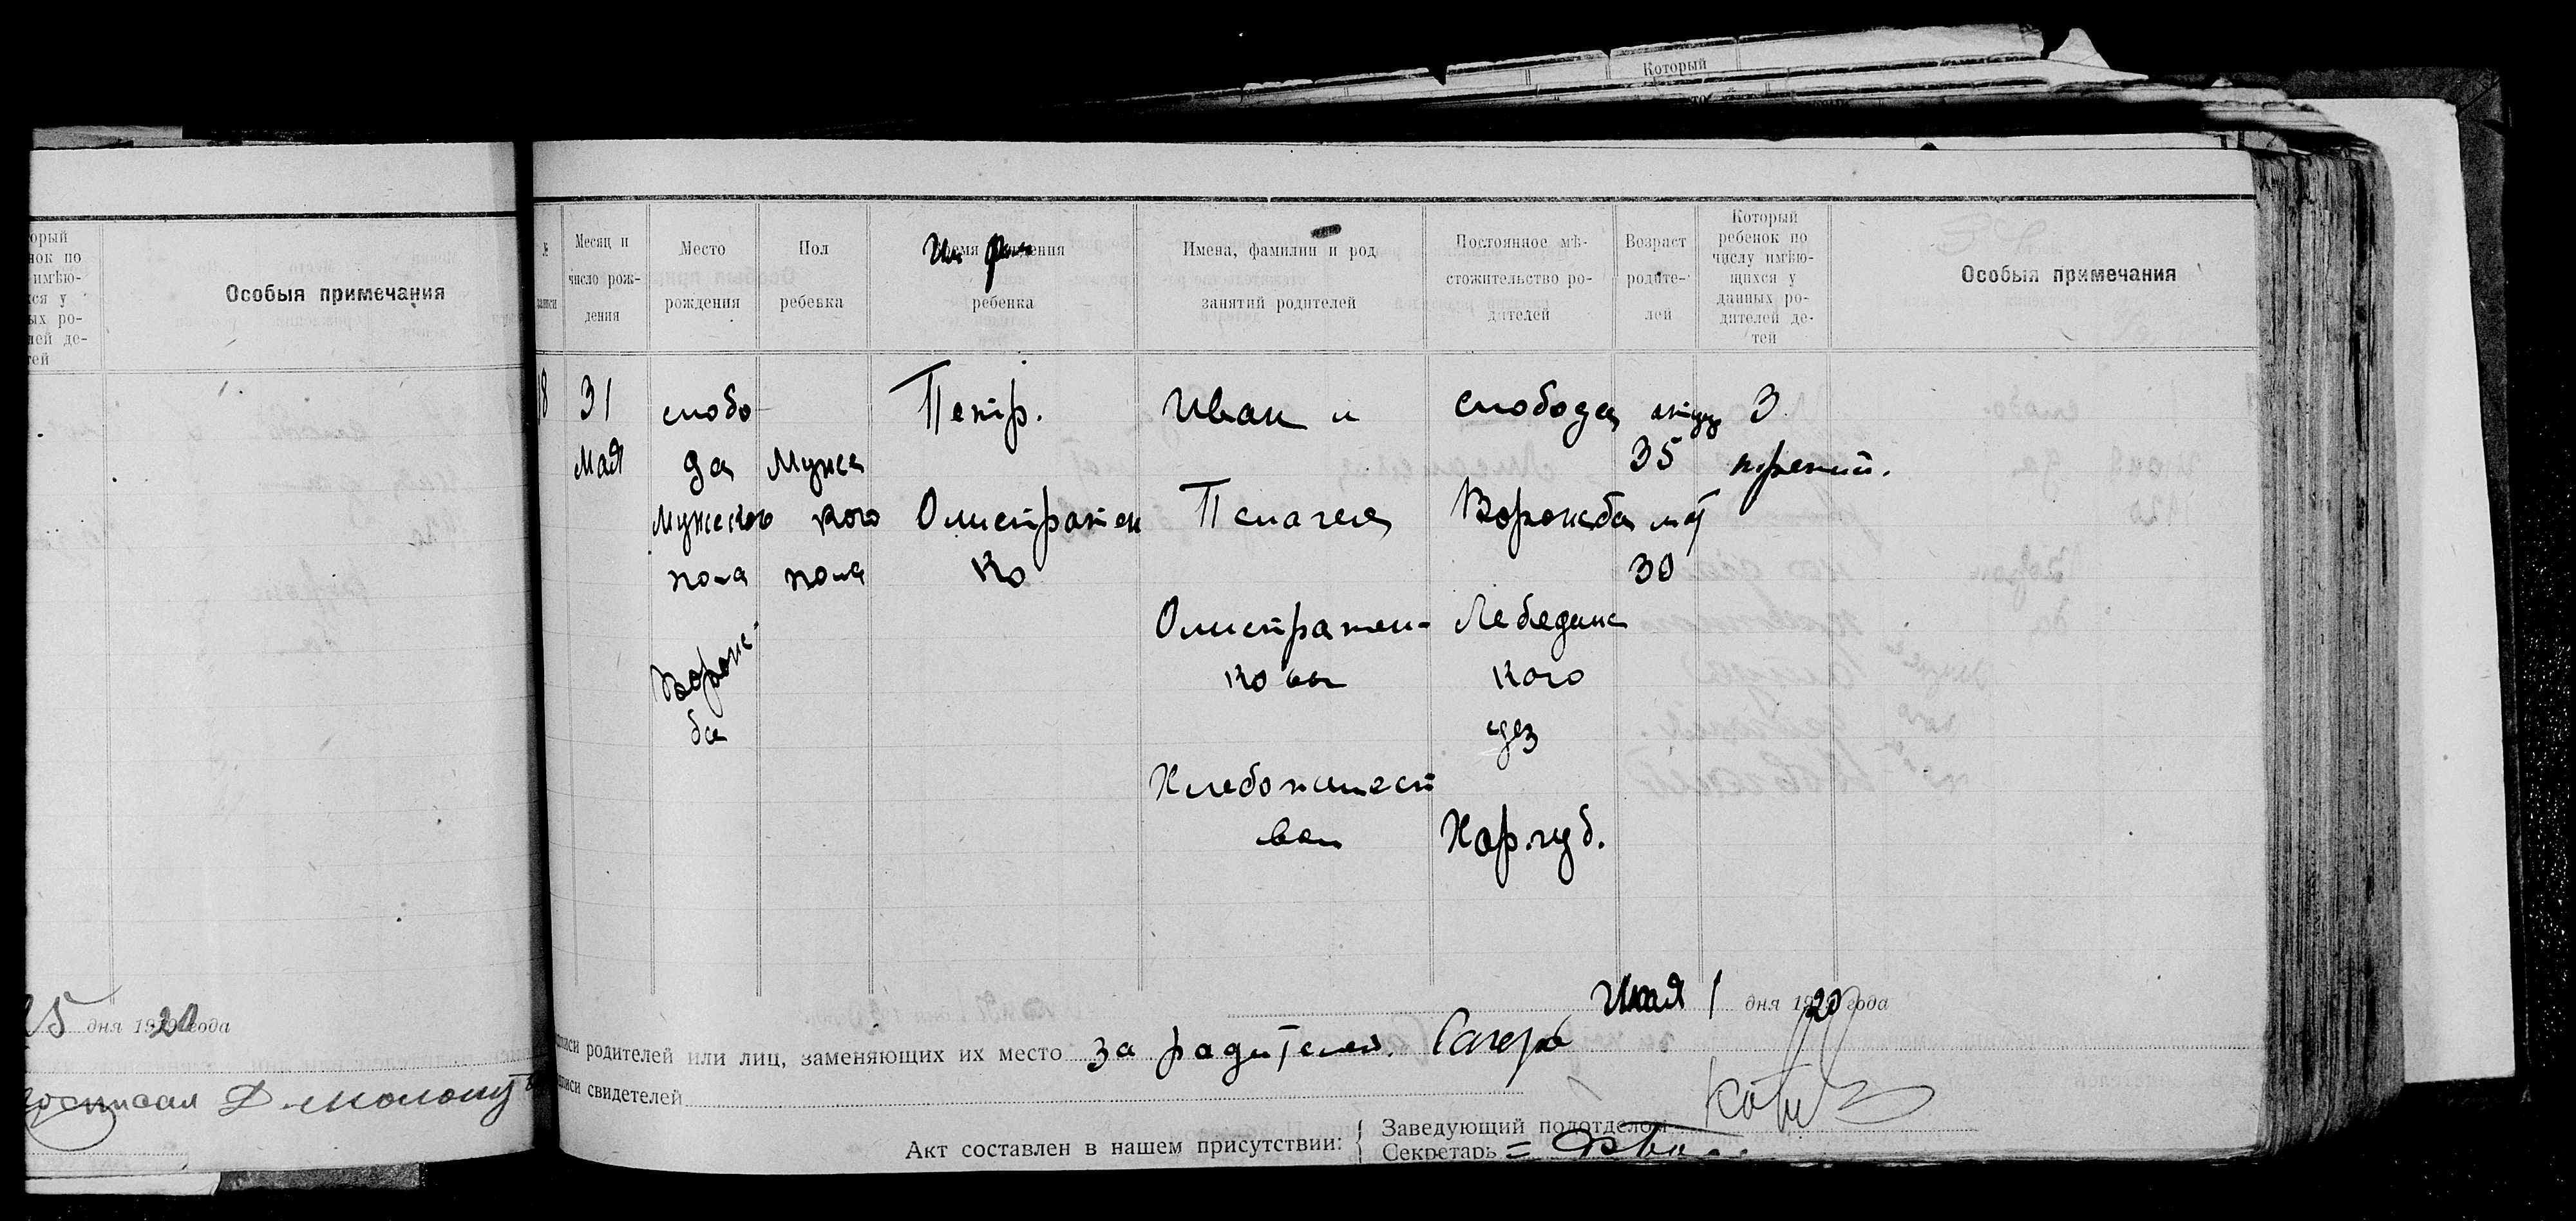 Который
орый
нок по
имѣю-
хся у
ых ро-
лей де-
тей
Особыя примечания
25 дня 1920 года
№
записи
Месяц и
число рож-
дения
Место
рождения
Пол
ребенка
Имя
ребенка
Имена, фамилии и род
занятий родителей
Постоянное мѣ-
стожительство ро-
дителей
Возраст
родите-
лей
Который
ребенок по
числу имѣю-
щихся у
данных ро-
дителей де-
тей
Особыя примечания
18
31
мая
слобо
да
Мужского
пола
Ворож-
ба
Мужс
кого
пола
Петр.
Олистратен
ко
Иван и
Пелагея
Олистратен-
ковы
Хлебопашест
вом
слобода
Ворожба
Лебединс
кого
уез
Хар. губ.
отцу
35
мат
30
3
третий.
1 дня 1920 года
писи родителей или лиц, заменяющих их место за радителей.
писи свидетелей
Акт составлен в нашем присутствии:
Заведующий подотделом
Секретарь